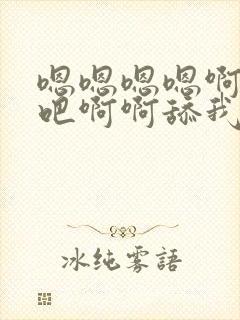 嗯嗯嗯嗯啊
吧啊啊舔我
冰纯雾語